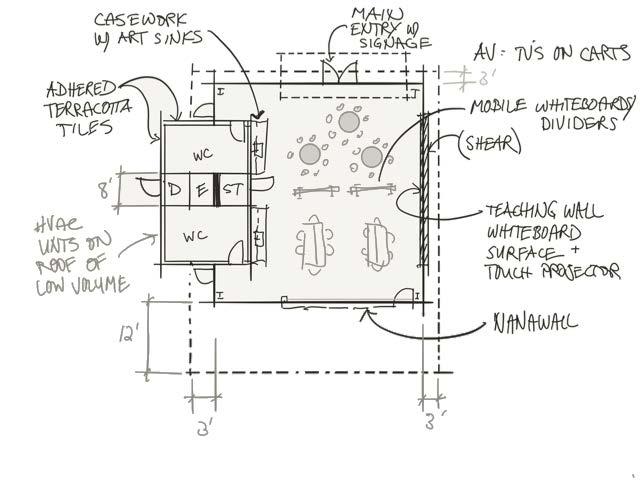 CASEWORK
W/ ART SINKS
MAIN
ENTRY W/
SIGNAGE
AV: TV'S ON CARTS
3'
ADHERED
TERRACOTTA
TILES
MOBILE WHITEBOARDS/
DIVIDERS
(SHEAR)
WC
8'
D E ST
WC
HVAC
UNITS ON
ROOF OF
LOW VOLUME
TEACHING WALL
WHITEBOARD
SURFACE +
TOUCH PROJECTOR
NANAWALL
12'
3'
3'